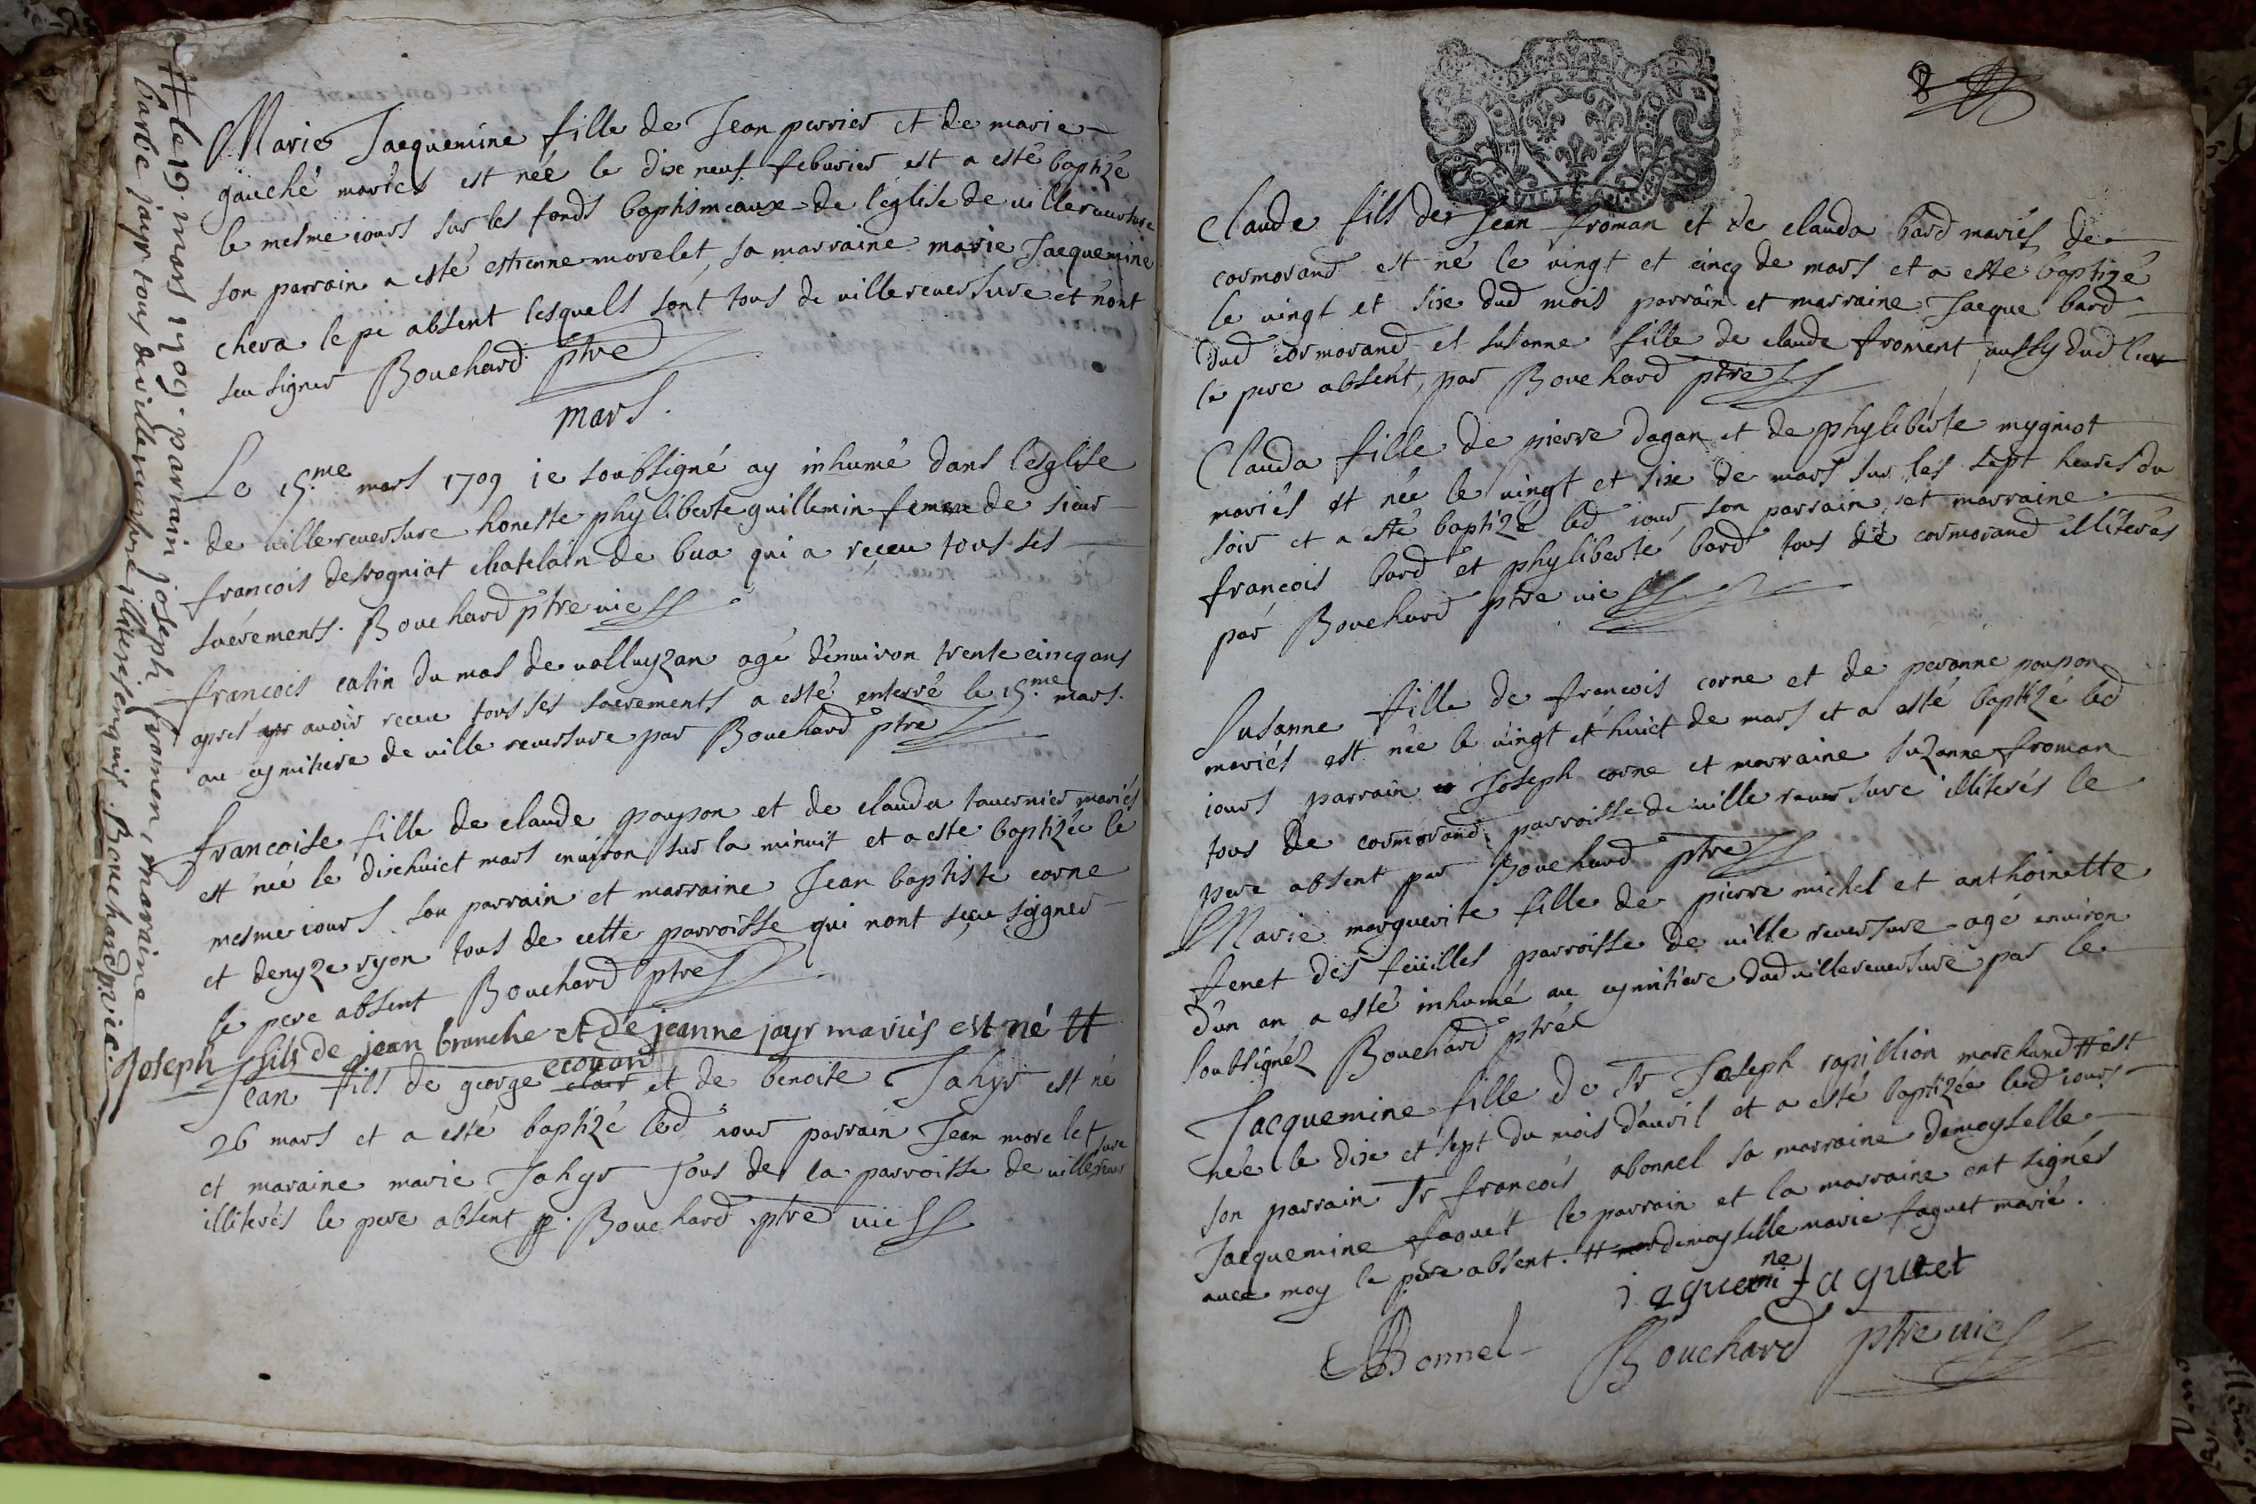 Marie Jacquemine fille de Jean perrier et de marie
gauché mariés est née le dixe neuf feburier est a esté baptizé
le mesme iours sur les fonds baptismeaux de l'eglise de villereuersure
son parrain a esté estienne morelet, sa marraine marie Jacquemine
cheva le pe absent lesquels sont tous de villereuersure et n'ont
seu signer Bouchard ptre
mars.
Le 15.me mars 1709 ie soubsigné ay inhumé dans l'esglise
de villereuersure honeste phyliberte guillemin femme de sieur
francois desrogniat chatelain de bua qui a receu tous ses
sacrements. Bouchard ptre vic
francois catin du mas de valluyzan agé d'enuiron trente cincq ans
apres avoir receu tous ses sacrements a esté enterré le 15.me mars.
au cymitiere de ville reuersure par Bouchard ptre
francoise fille de claude poupon et de clauda tauernier mariés
est née le dixehuict mars enuiron sur la minuit et a este baptizée le
mesme iours son parrain et marraine Jean baptiste corne
et denyze ryon tous de cette parroisse qui nont sceu signer
le pere absent Bouchard ptre
Joseph fils de jean branche et de jeanne jayr mariés est né #
Jean fils de george ecouard et de benoite Jahyr est né
26 mars et a esté baptizé led iour parrain Jean morelet
et maraine marie Jahyr tous de la parroisse de villereuersure
illiterés le pere absent p. Bouchard ptre vic
# le 19. mars 1709. parrain joseph framen, marraine
barbe jayr tous de villereuersure illiteres enquis. Bouchard p. vic.
8
Claude fils de Jean froman et de clauda bard mariés de
cormorand est né le vingt et cincq de mars et a esté baptizé
le vingt et sixe dud mois parrain et marraine Jacque bard
dud cormorand et susanne fille de claude froment aussy dud lieu
le pere absent, par Bouchard ptre
Clauda fille de pierre dagan et de phyliberte mygniot
mariés est née le vingt et sixe de mars sur les sept heures du
soir et a esté baptizé led iour, son parrain et marraine
francois bard et phyliberte bard tous de cormorand illiterés
par Bouchard ptre vic
Susanne fille de francois corne et de peronne poupon
mariés est née le vingt et huict de mars et a esté baptizé led
iours parrain Joseph corne et marraine suzanne froman
tous de cormorand parroisse de ville reuersure illiterés le
pere absent par Bouchard ptre
Marie marguerite fille de pierre michel et anthoinette
fenet des feüilles parroisse de ville reuersure agé enuiron
d'un an a esté inhumé au cymitiere dud villereuersure par le
soubsignéz Bouchard ptre
Jacquemine fille de Sr Joseph rapillion marchand # est
née le dixe et sept du mois d'auril et a esté baptizée led iours
son parrain Sr francois abonnel sa marraine demoyselle
Jacquemine faquet le parrain et la marraine ont signés
auec moy le père absent. # demoyselle marie faguet marié.
iaquemine faguet
Bonnel Bouchard ptre vic